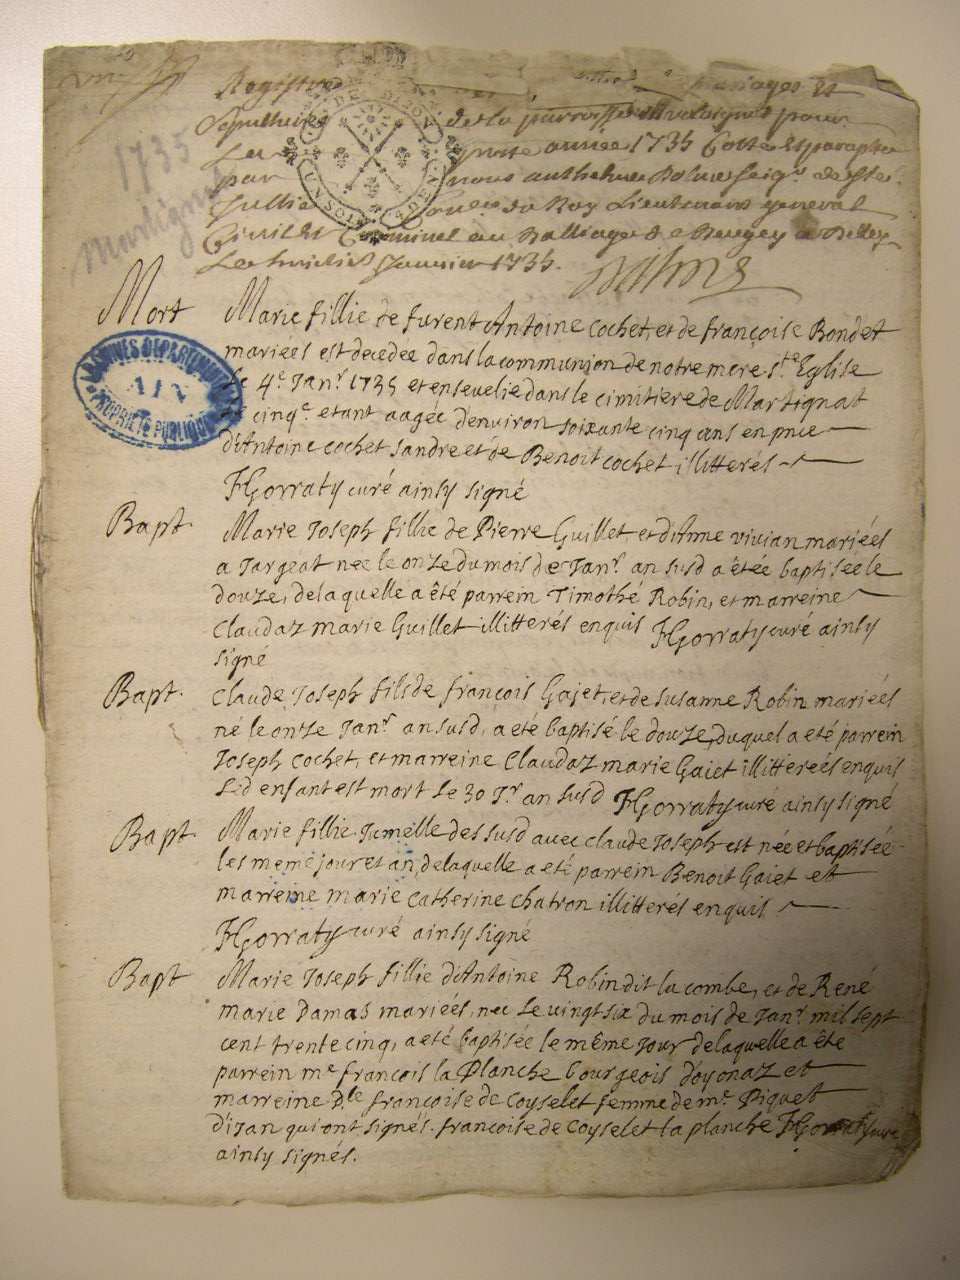 Registre mariages et
Sepultures de la parroisse de Martignat pour
La presente année 1735 Cotté et paraphé
par nous anthelme Balme seigr. de Ste.
Jullie Conser. du Roy Lieutenant general
Civil et Criminel au Balliage de Beugey a Belley
Le huictie Janvier 1735.
Balme
1735
Martignat
GEN DE DIJON
UN SOL 4 DEN
ARCHIVES DEPARTEMENTALES
AIN
PROPRIETE PUBLIQUE
Mort Marie fillie de furent Antoine Cochet, et de françoise Bondet
mariées est decedée dans la communion de notre mere ste Eglise
le 4e Janr. 1735 et ensevelie dans le cimitiere de Martignat
le cinqe. etant aagée d'environ soixante cinq ans en pnce
d'Antoine cochet sandre et de Benoit cochet illitterés
FGorraty curé ainsy signé
Bapt. Marie Joseph fillie de Pierre Guillet et d'Anne vivian mariées
a Jargeat nee le onze du mois de Janr. an susd a étée baptisée le
douze, de laquelle a êté parrein Timothé Robin, et marreine
Claudaz marie Guillet illitterés enquis FGorraty curé ainsy
signé
Bapt. Claude Joseph fils de françois Gajet, et de susanne Robin mariées
né le onze Janr an susd, a eté baptisé le douze, duquel a eté parrein
Joseph cochet, et marreine Claudaz marie Gaiet illitterées enquis
Led enfant est mort le 30 Jr. an susd FGorraty curé ainsy signé
Bapt. Marie fillie Jumelle des susd avec claude Joseph est née et baptisée
les meme jour et an, de laquelle a eté parrein Benoit Gaiet et
marreine marie catherine chatron illitterés enquis
FGorraty curé ainsy signé
Bapt Marie Joseph fillie d'Antoine Robin dit la combe, et de René
marie Damas mariées, nee le vingt six du mois de Janr. mil sept
cent trente cinq, a eté baptisée le même jour de laquelle a ête
parrein me. françois la Planche bourgeois d'oyonaz et
marreine Dlle françoise de Coyselet femme de mr. Piquet
d'izan qui ont signés. françoise de coyselet la planche FGorraty curé
ainsy signés.